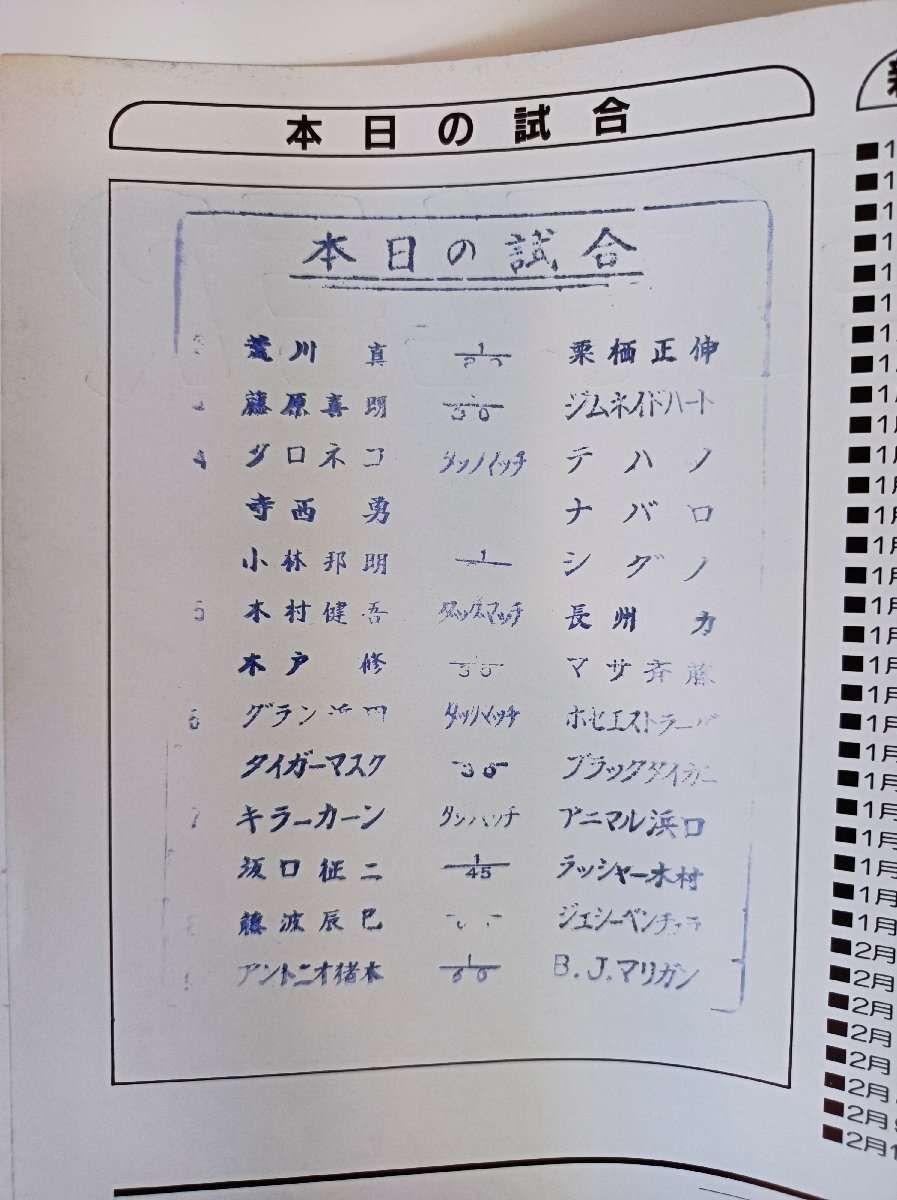 本日の試合
本日の試合
荒川 真 1 栗栖正伸
藤原喜明 30 ジムネイドハート
4 クロネコ タッグマッチ テハノ
寺西 勇 ナバロ
小林邦明 1 シグノ
5 木村健吾 タッグマッチ 長州 力
木戸 修 30 マサ斉藤
6 グラン浜田 タッグマッチ ホセエストラーダ
タイガーマスク 30 ブラックタイガー
7 キラーカーン タッグマッチ アニマル浜口
坂口征二 1/45 ラッシャー木村
8 藤波辰巳 ジェシーベンチュラ
アントニオ猪木 1/60 B.J.マリガン
■1
■1
■1
■1
■1
■1
■1
■1
■1
■1
■1月
■1月
■1月
■1月
■1月
■1月
■1月
■1月
■1月
■1月
■1月
■1月
■1月
■1月
■1月
■1月
■1月
■2月
■2月
■2月
■2月
■2月
■2月
■2月
■2月